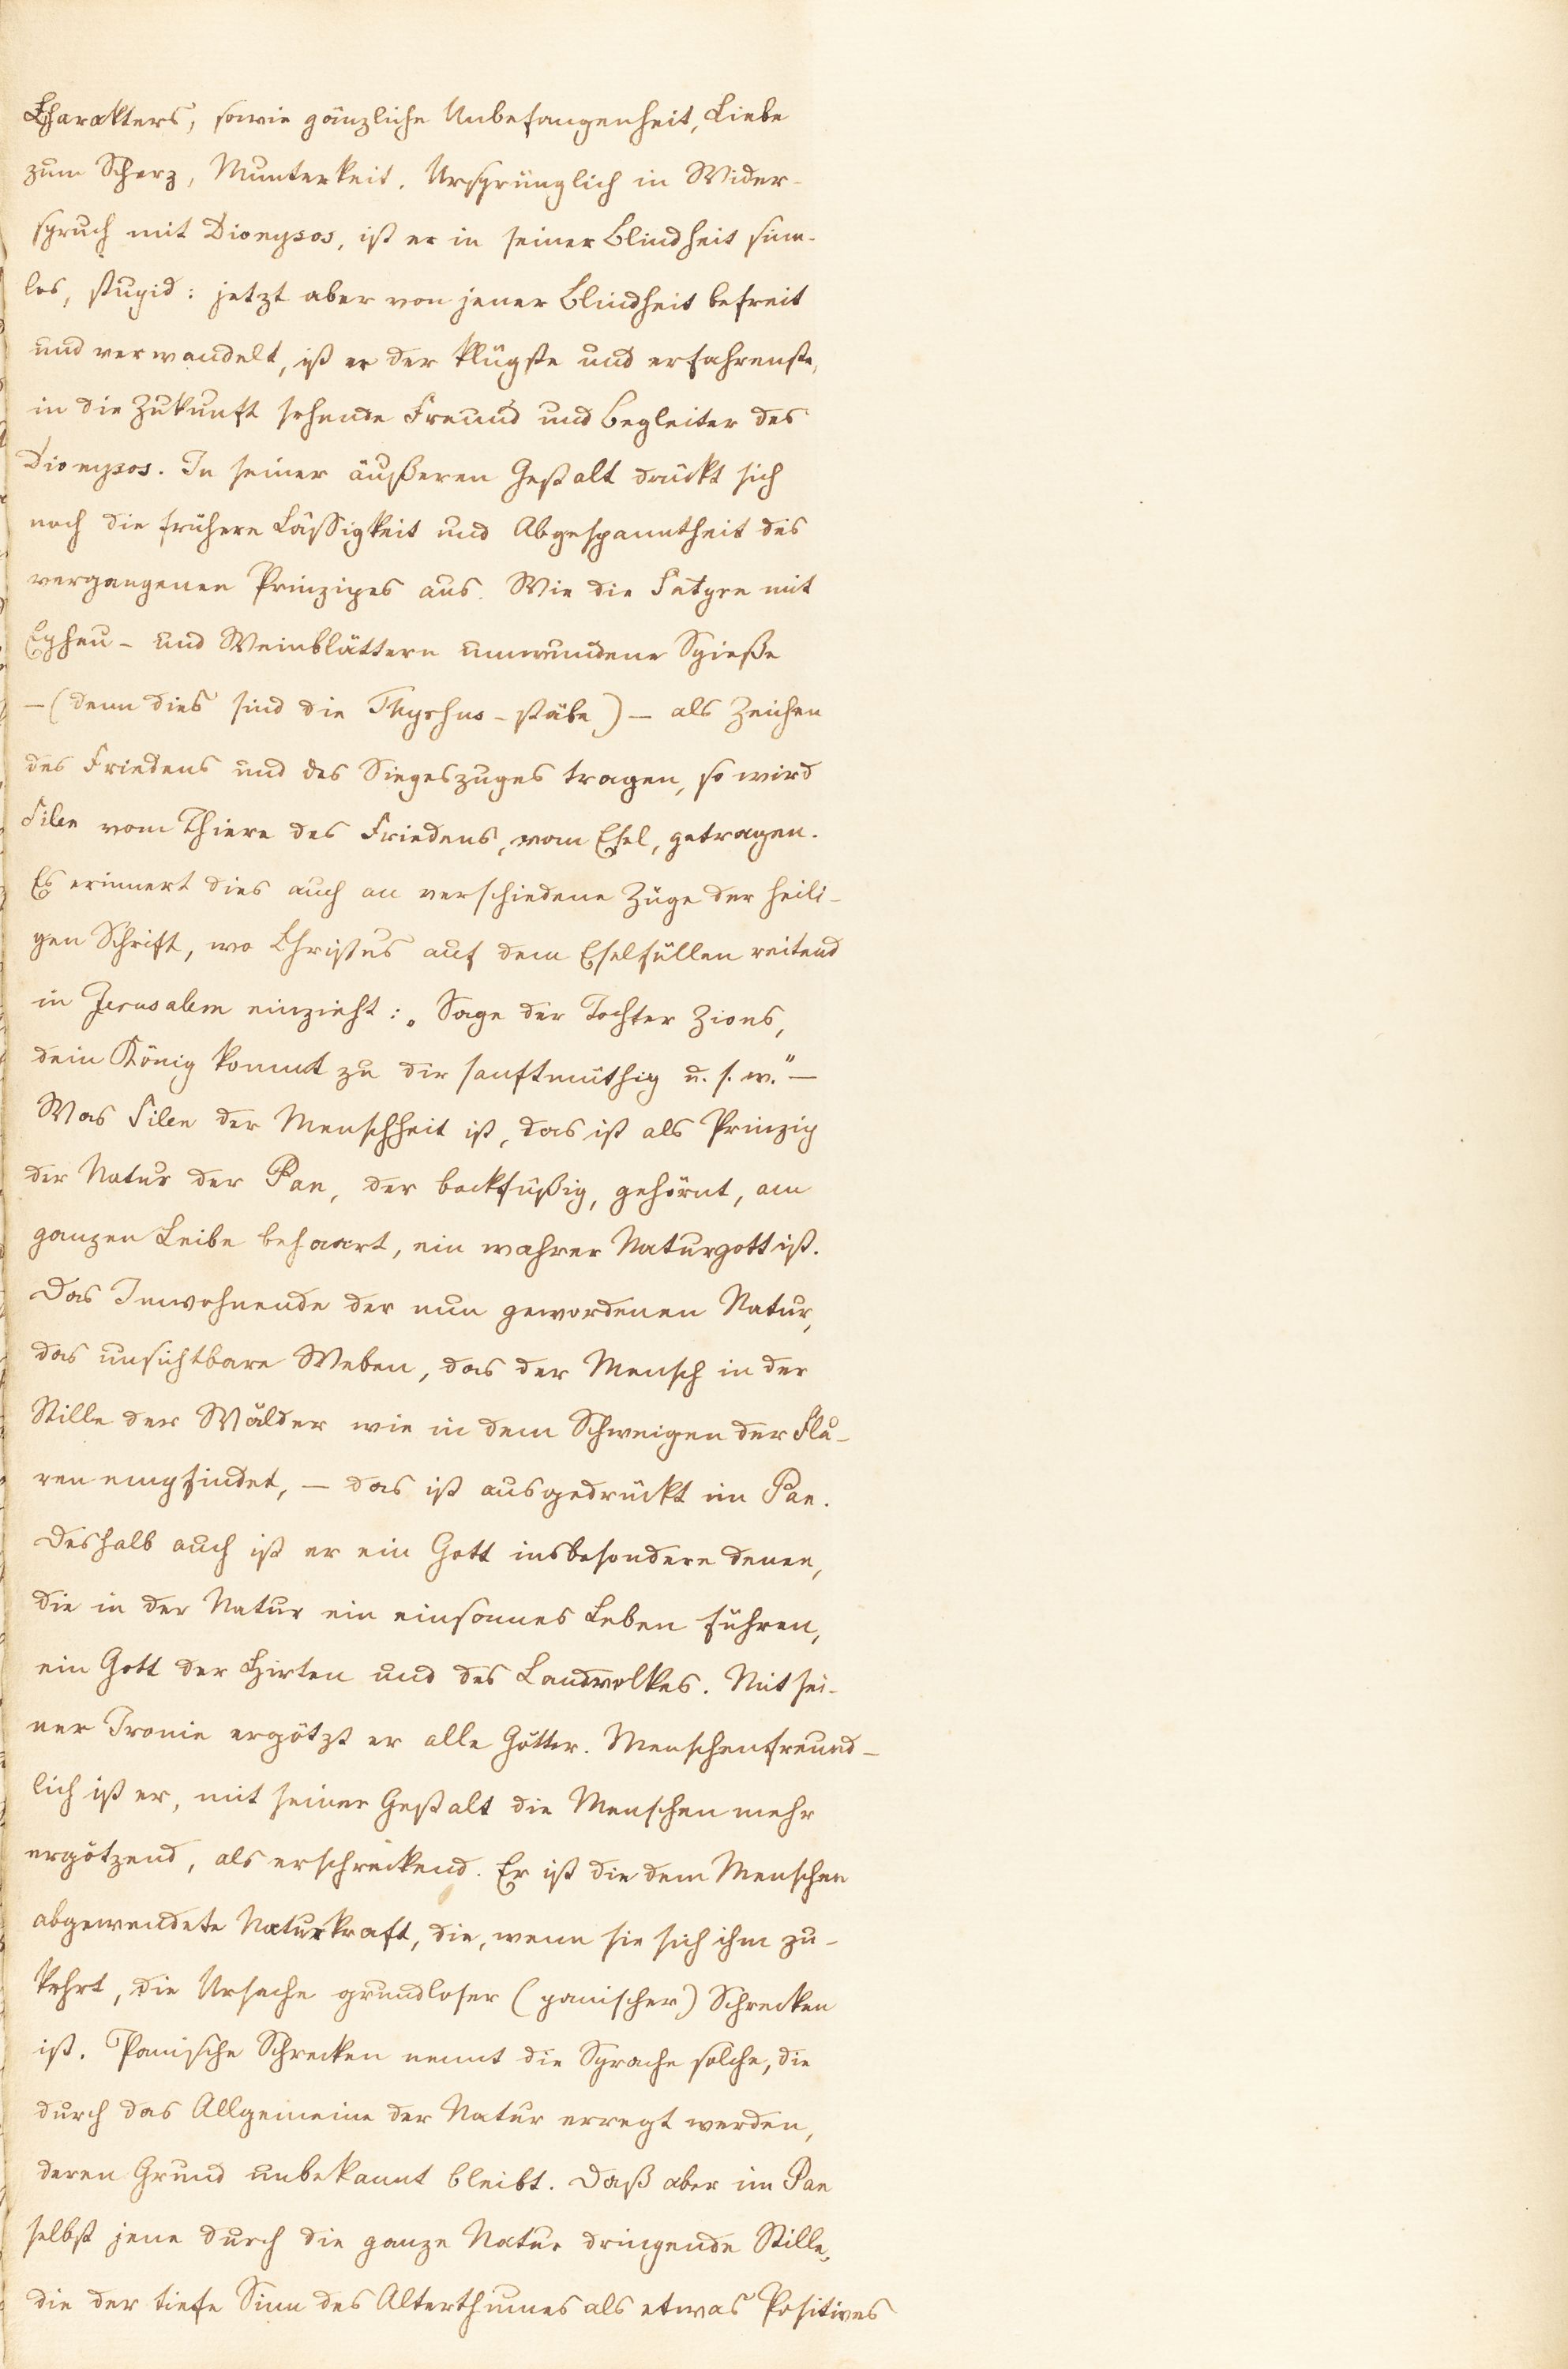 Charakters, sowie gänzliche Unbefangenheit, Liebe
zum Scherz, Munterkeit. Ursprünglich in Wider-
spruch mit Dionysos, ist er in seiner Blindheit sinn-
los, stupid: jetzt aber von jener Blindheit befreit
und verwandelt, ist er der klügste und erfahrenste,
in die Zukunft sehende Freund und Begleiter des
Dionysos. In seiner äußeren Gestalt drückt sich
noch die frühere Läßigkeit und Abgespanntheit des
vergangenen Prinzipes aus. Wie die Satyrn mit
Epheu- und Weinblättern umwundene Spieße
— (denn dies sind die Thyrsus-stäbe) — als Zeichen
des Friedens und des Siegeszuges tragen, so wird
Silen vom Thiere des Friedens, vom Esel, getragen.
Es erinnert dies auch an verschiedene Züge der heili-
gen Schrift, wo Christus auf dem Eselfüllen reitend
in Jerusalem einzieht: „Sage der Tochter Zions,
dein König kommt zu dir sanftmüthig u. s. w." —
Was Silen der Menschheit ist, das ist als Prinzip
der Natur der Pan, der bockfüßig, gehörnt, am
ganzen Leibe behaart, ein wahrer Naturgott ist.
Das Inwohnende der nun gewordenen Natur,
das unsichtbare Weben, das der Mensch in der
Stille der Wälder wie in dem Schweigen der Flu-
ren empfindet, — das ist ausgedrückt im Pan.
Deshalb auch ist er ein Gott insbesondere denen,
die in der Natur ein einsames Leben führen,
ein Gott der Hirten und des Landvolkes. Mit sei-
ner Ironie ergötzt er alle Götter. Menschenfreund-
lich ist er, mit seiner Gestalt die Menschen mehr
ergötzend, als erschreckend. Er ist die dem Menschen
abgewendete Naturkraft, die, wenn sie sich ihm zu-
kehrt, die Ursache grundloser (panischer) Schrecken
ist. Panische Schrecken nennt die Sprache solche, die
durch das Allgemeine der Natur erregt werden,
deren Grund unbekannt bleibt. Daß aber im Pan
selbst jene durch die ganze Natur dringende Stille,
die der tiefe Sinn des Alterthumes als etwas Positives